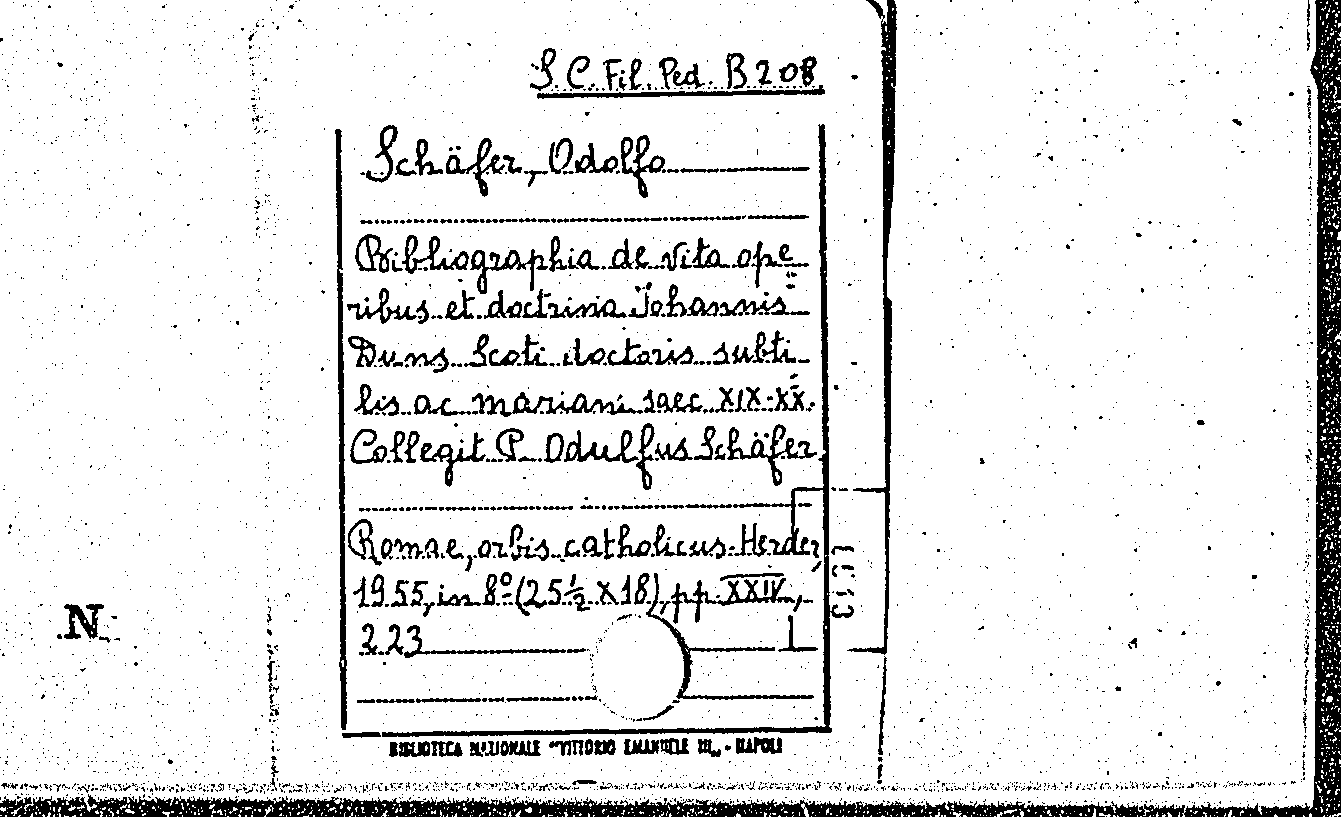 S.C. Fil. Ped. B 208
Schäfer, Odolfo
Bibliographia de vita ope=
ribus et doctrina Johannis
Duns Scoti doctoris subti=
lis ac mariani saec XIX-XX.
Collegit P. Odulfus Schäfer.
Romae, orbis catholicus-Herder,
1955, in 8º (25½ X 18), pp. XXIV,
223
N
BIBLIOTECA NAZIONALE "VITTORIO EMANUELE III„ - NAPOLI